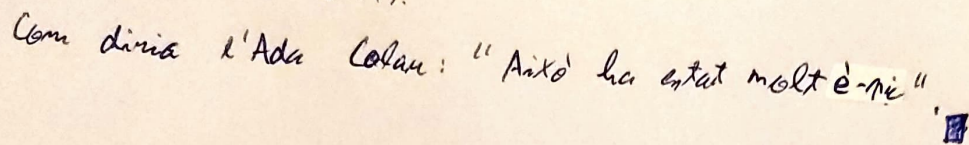 Com diria l'Ada Colau: "Això ha estat molt è-pic".